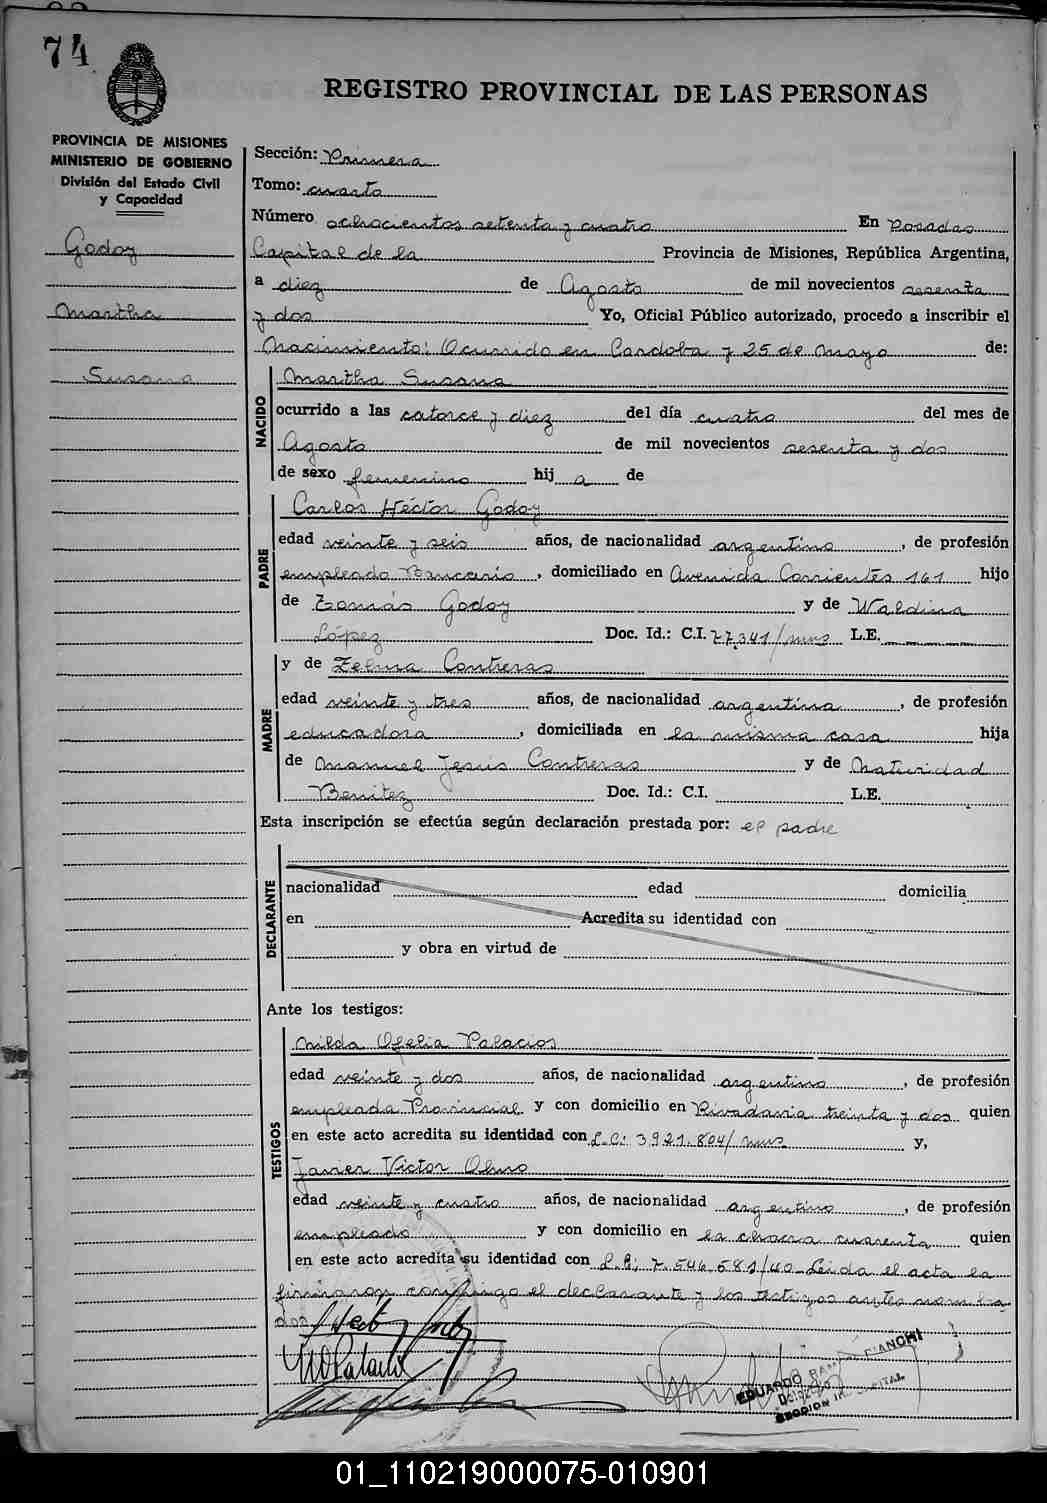 74
REGISTRO PROVINCIAL DE LAS PERSONAS
PROVINCIA DE MISIONES
MINISTERIO DE GOBIERNO
División del Estado Civil
y Capacidad
Godoy
Martha
Susana
Sección: Primera
Tomo: cuarto
Número ochocientos setenta y cuatro En Posadas
Capital de la Provincia de Misiones, República Argentina,
a diez de Agosto de mil novecientos sesenta
y dos Yo, Oficial Público autorizado, procedo a inscribir el
Nacimiento: Ocurrido en Cordoba y 25 de Mayo de:
NACIDO
Martha Susana
ocurrido a las catorce y diez del día cuatro del mes de
Agosto de mil novecientos sesenta y dos
de sexo femenino hij a de
PADRE
Carlos Héctor Godoy
edad veinte y seis años, de nacionalidad argentino, de profesión
empleado Bancario, domiciliado en Avenida Corrientes 161 hijo
de Tomás Godoy y de Waldina
López Doc. Id.: C.I. 77.341/mns L.E.
MADRE
y de Zelma Contreras
edad veinte y tres años, de nacionalidad argentina, de profesión
educadora, domiciliada en la misma casa hija
de Manuel Jesús Contreras y de Natividad
Benitez Doc. Id.: C.I. L.E.
Esta inscripción se efectúa según declaración prestada por: el padre
DECLARANTE
nacionalidad edad domicilia
en Acredita su identidad con
y obra en virtud de
Ante los testigos:
TESTIGOS
Nilda Ofelia Palacios
edad veinte y dos años, de nacionalidad argentino, de profesión
empleada Provincial y con domicilio en Rivadavia treinta y dos quien
en este acto acredita su identidad con L.C: 3921.804/mns y,
Javier Victor Olmo
edad veinte y cuatro años, de nacionalidad argentino, de profesión
empleado y con domicilio en la chacra cuarenta quien
en este acto acredita su identidad con L.E; 7.546.581/40 Leida el acta la
firmaron conmigo el declarante y los testigos antes nombra
dos
EDUARDO RAMON BIANCHI
SECCION CAPITAL
01_110219000075-010901